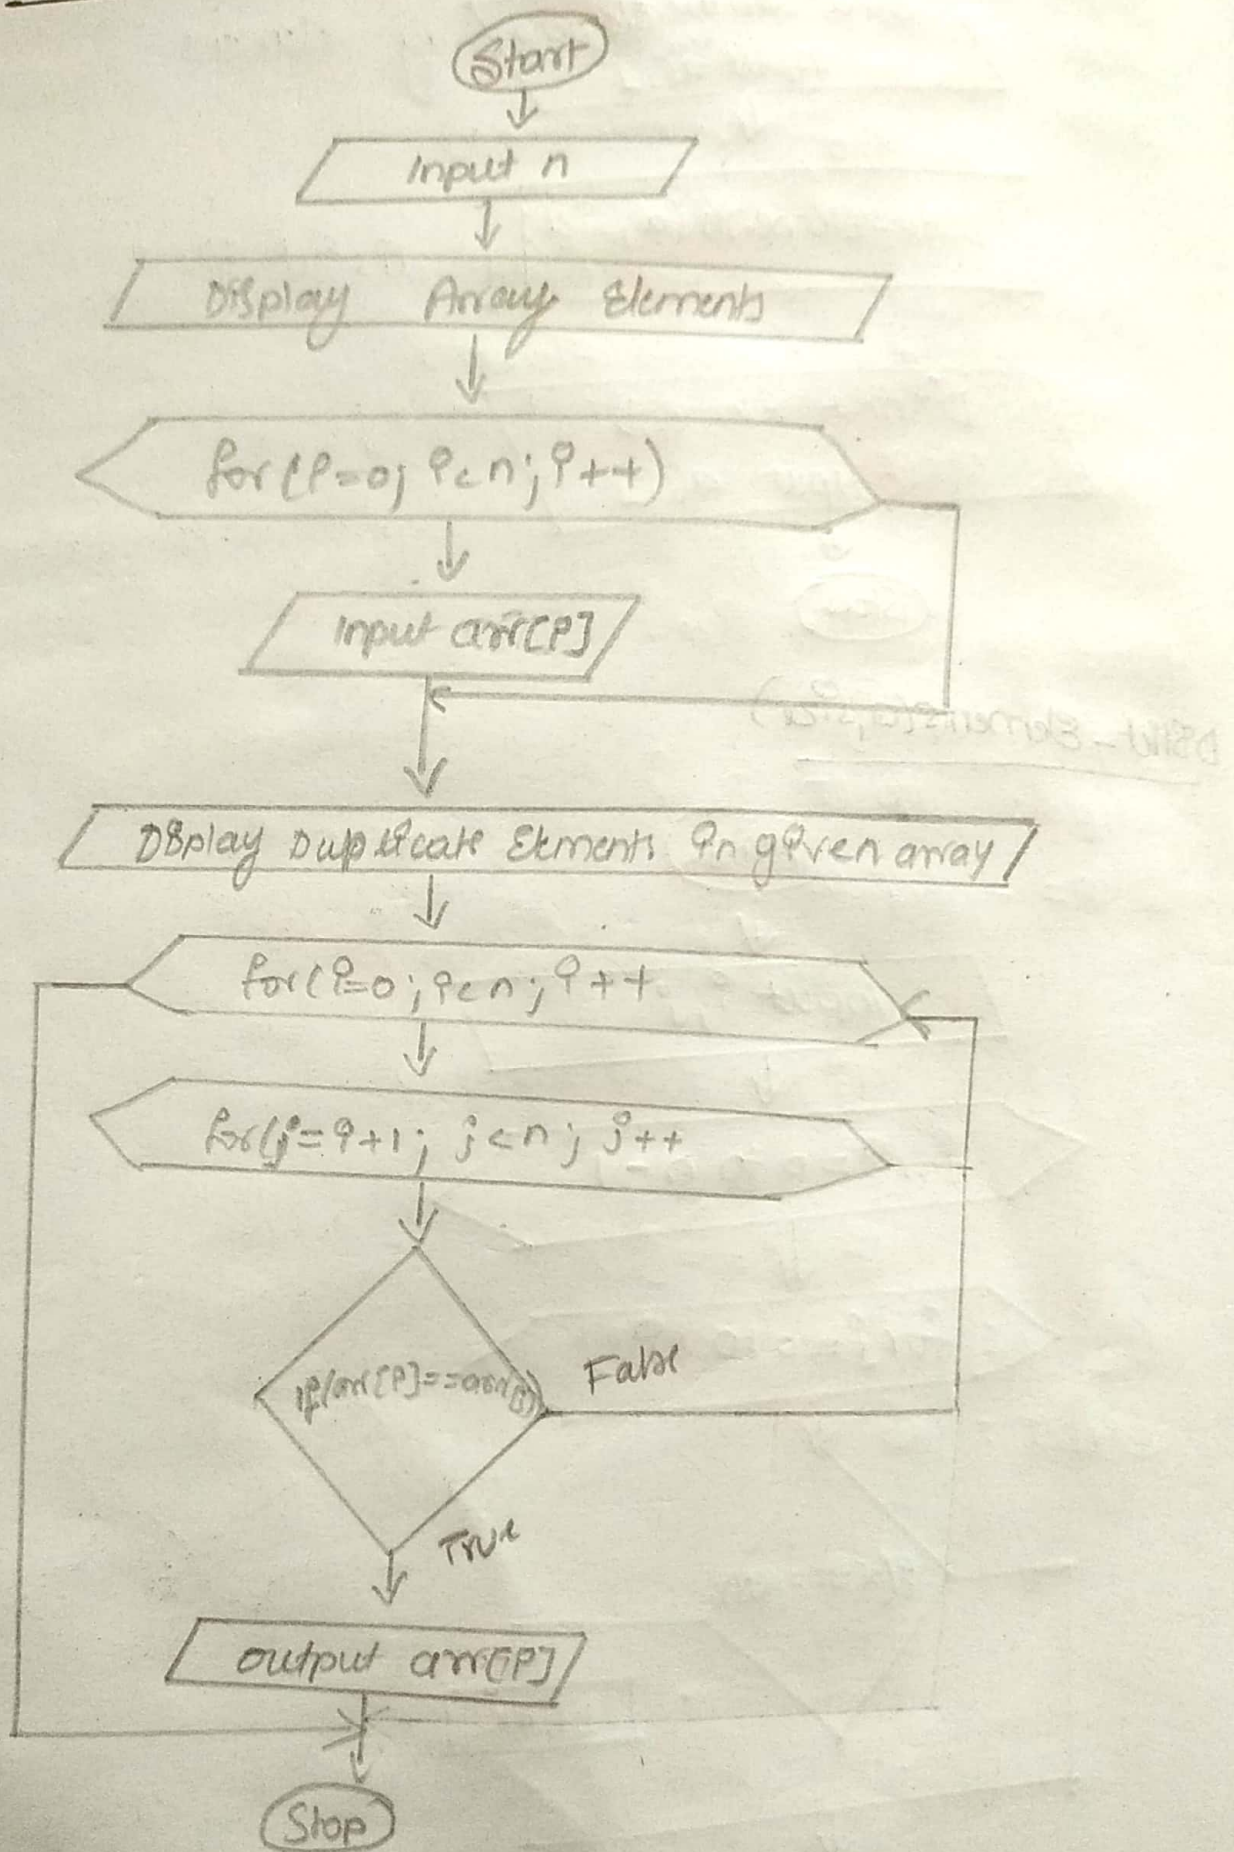 Start
Input n
Display Array Elements
for(i=0; i<n; i++)
Input arr[i]
Display Duplicate Elements in given array
for(i=0; i<n; i++
for(j=i+1; j<n; j++
if(arr[i]==arr[j])
False
True
output arr[i]
Stop